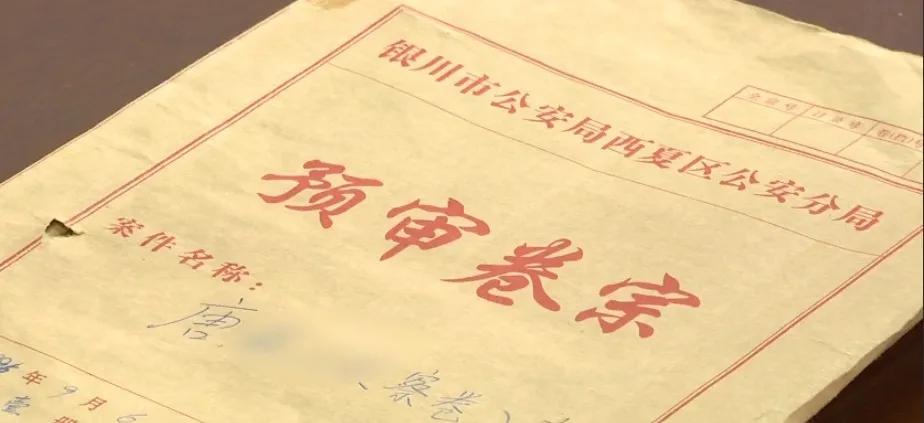 银川市公安局西夏区公安分局
全宗号 目录号 卷(档)号
预审卷宗
案件名称：
唐
、案卷
年9月6
壹